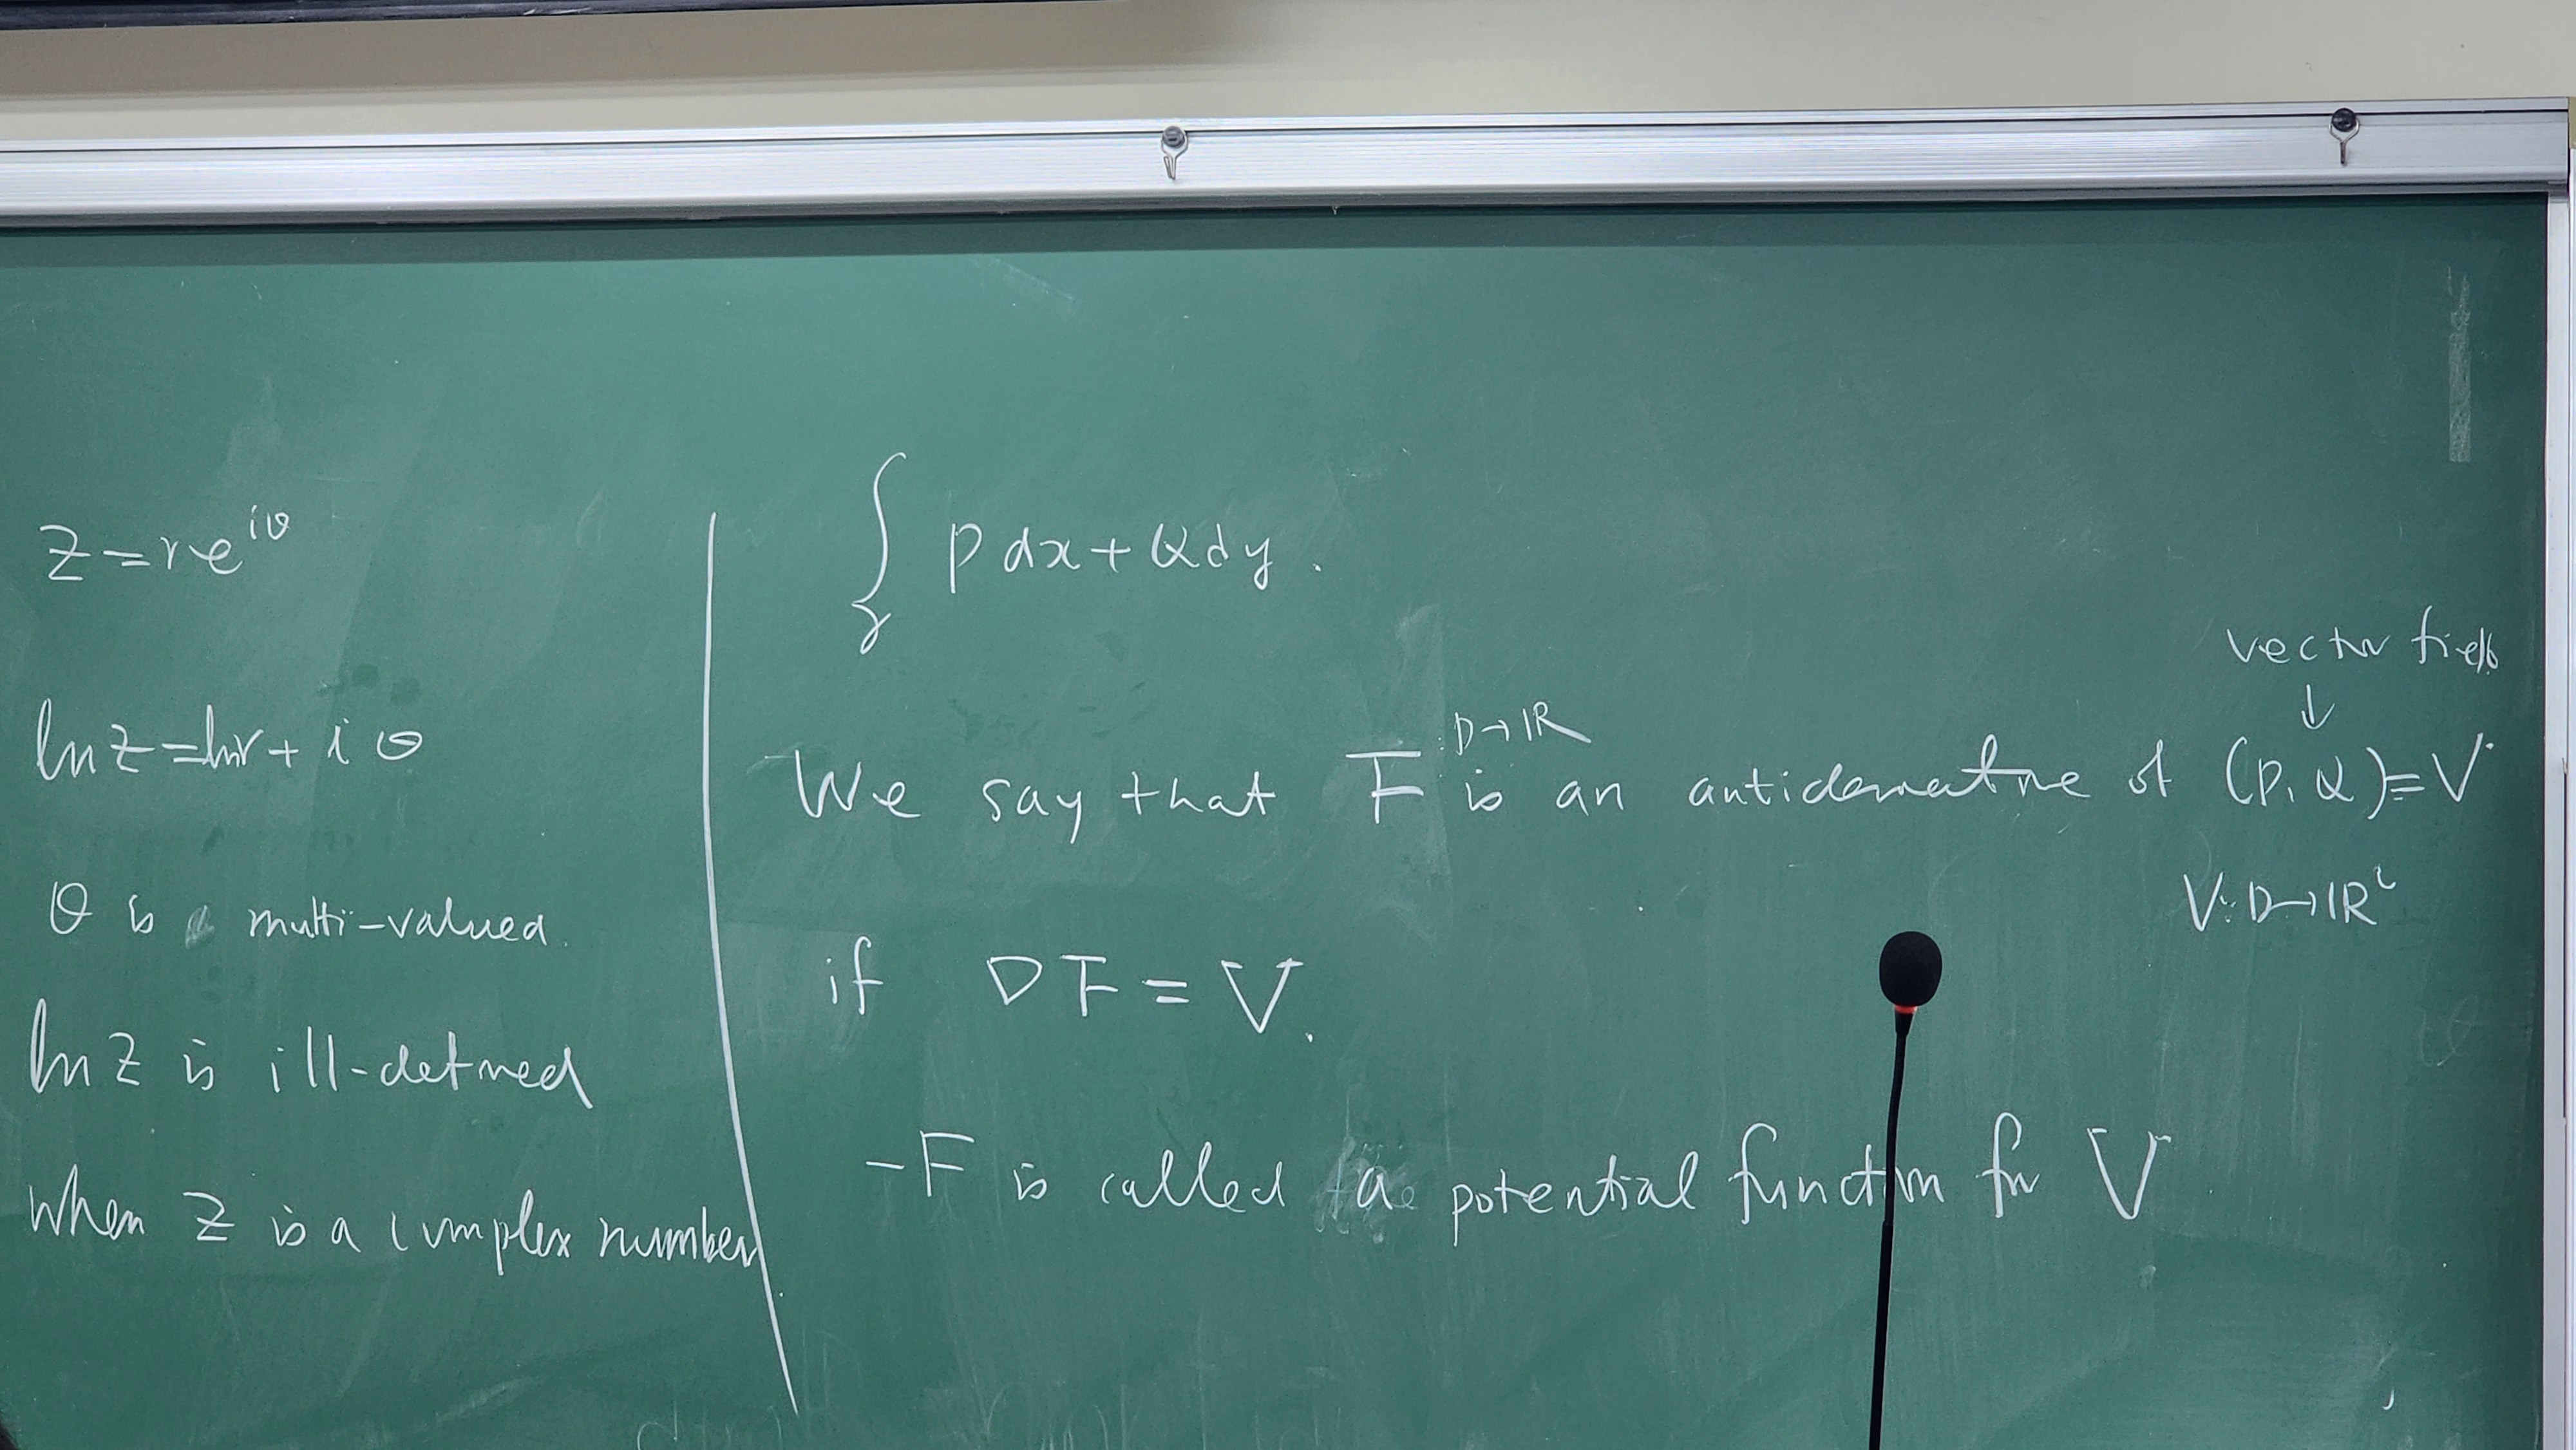 z = re^{iθ}
ln z = ln r + iθ
θ is multi-valued.
ln z is ill-defined
when z is a complex number
∫_γ P dx + Q dy.
vector field
↓
We say that F: D→ℝ is an antiderivative of (P, Q) = V.
V: D→ℝ²
if ∇F = V.
-F is called a potential function for V